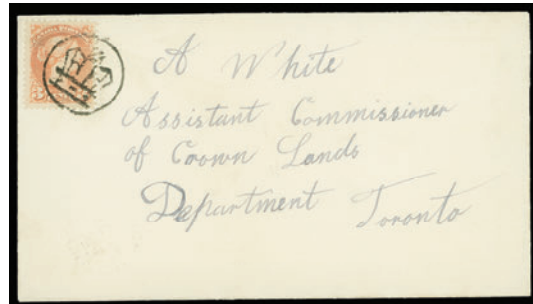 A White
Assistant Commissioner
of Crown Lands
Department Toronto